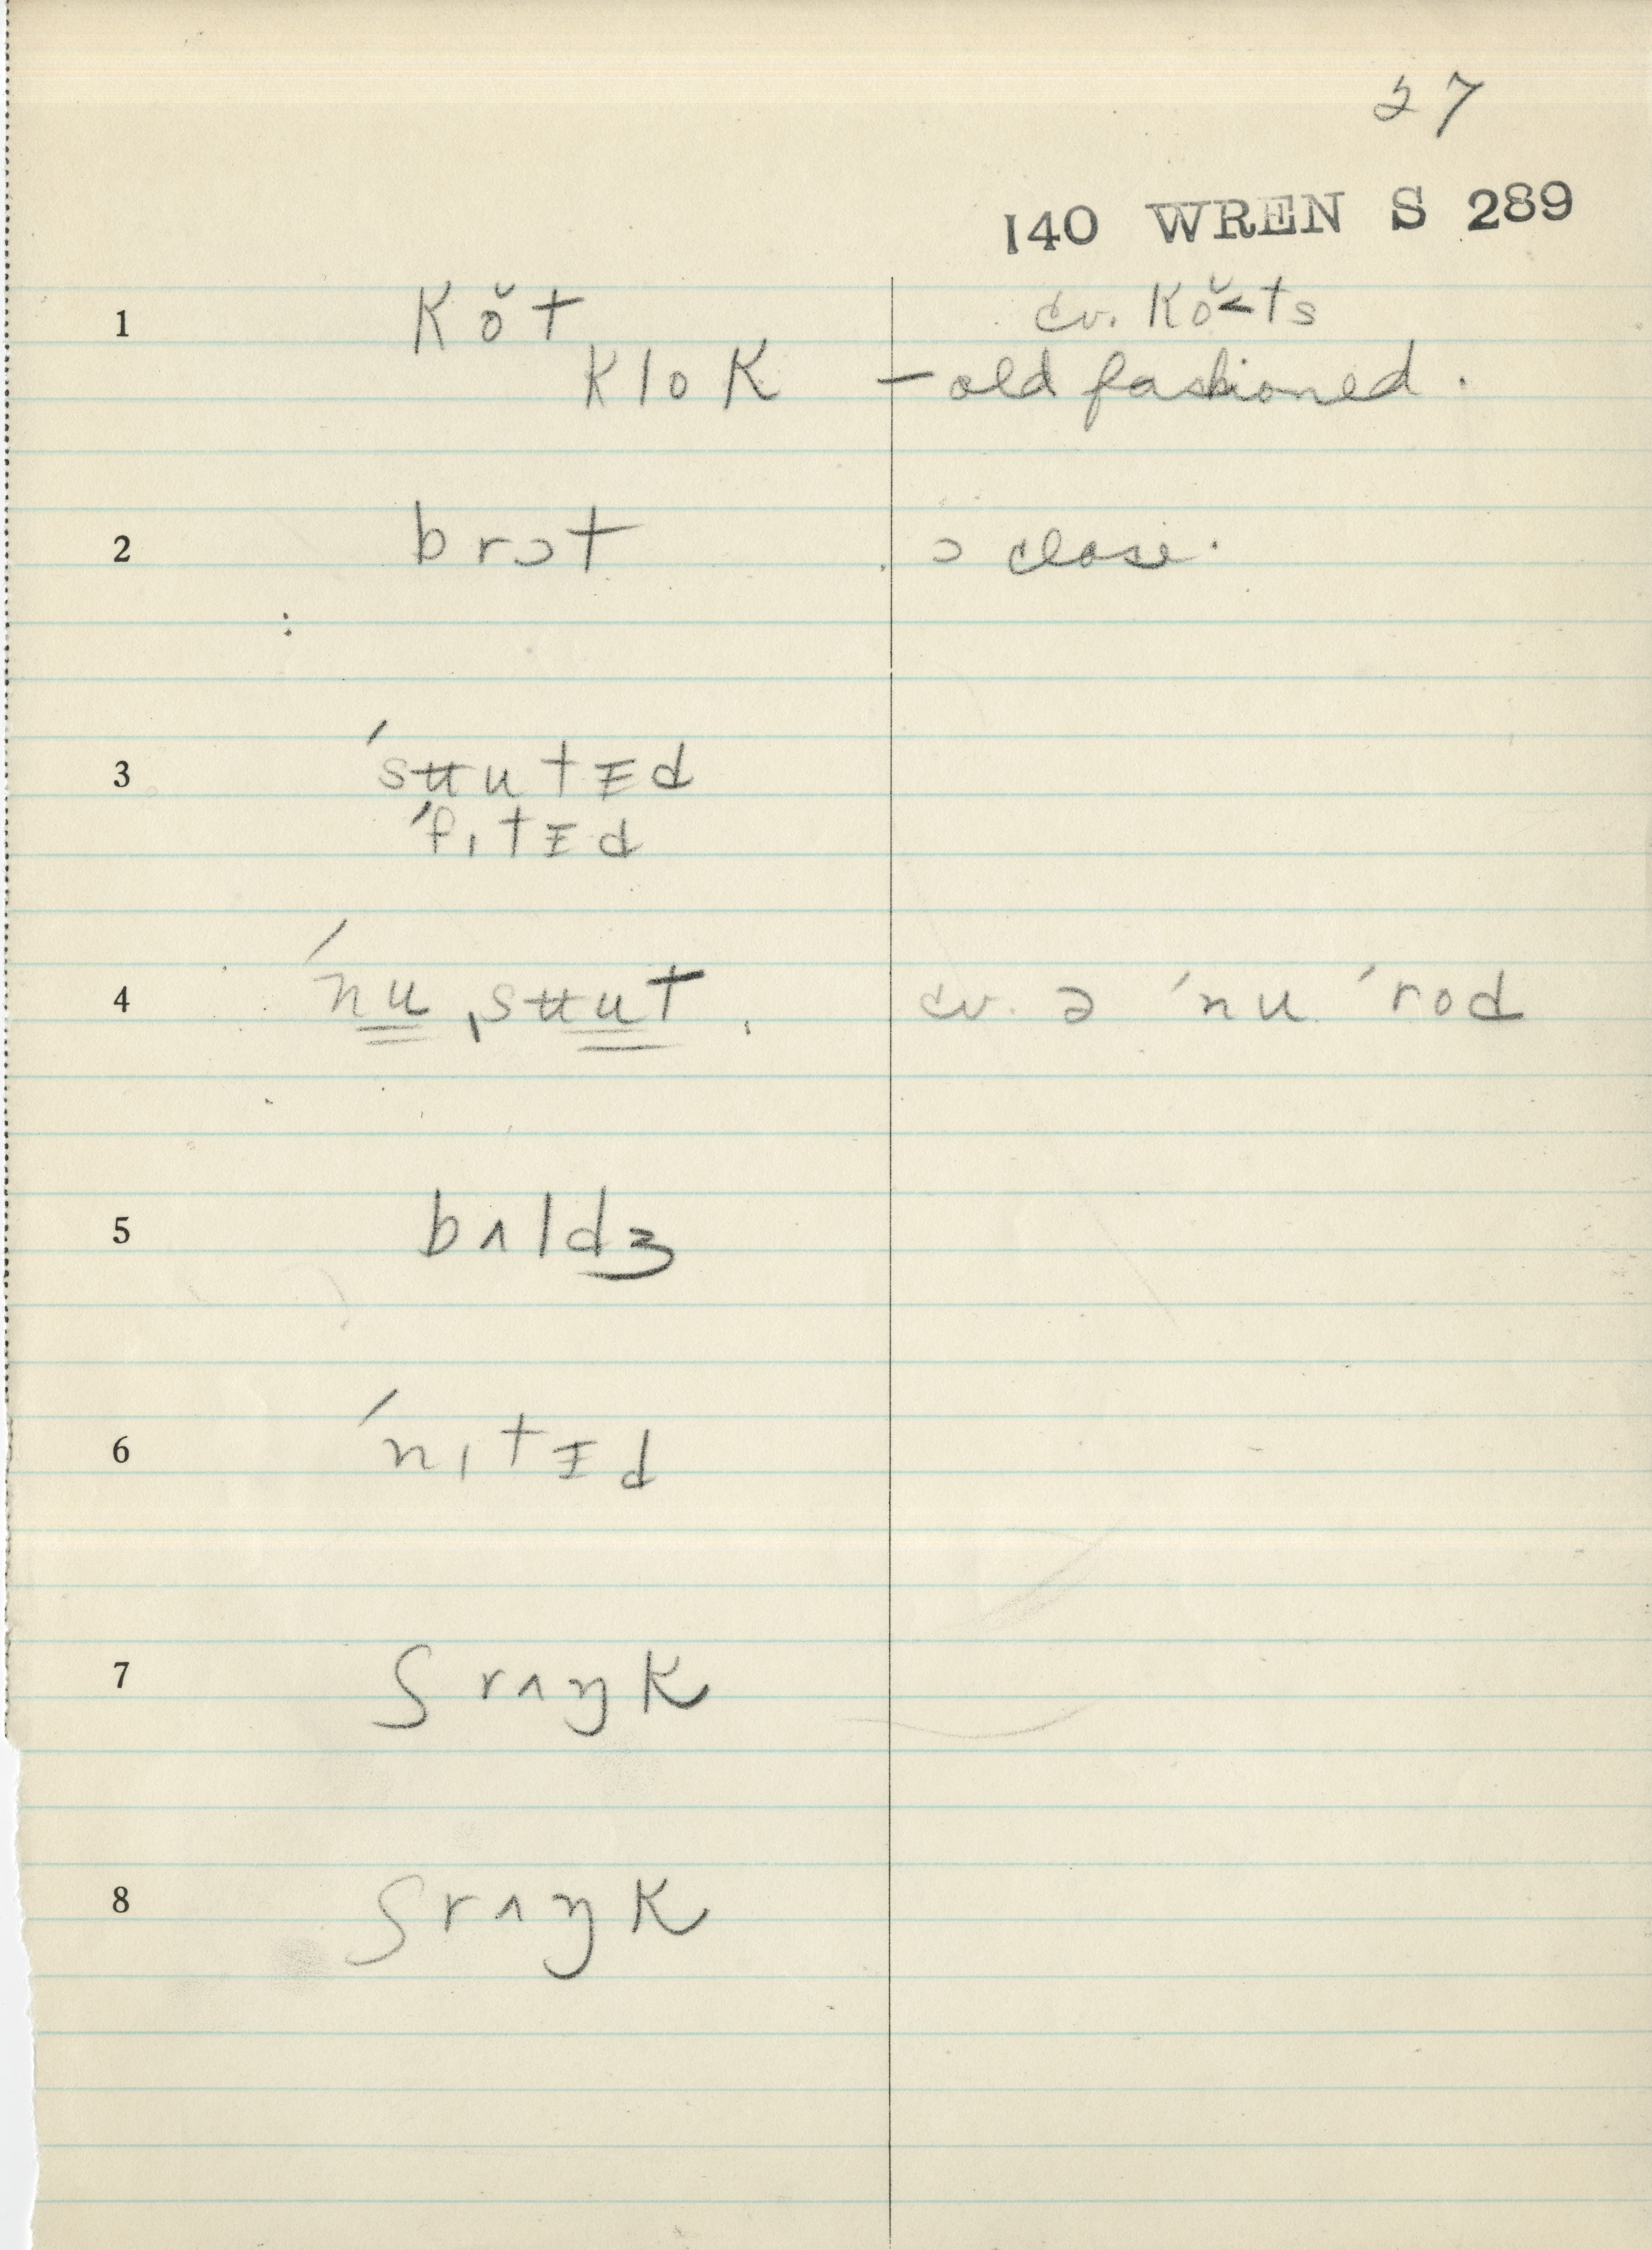 27
140 WREN S 289
1 kŏt cv. kŏ˂ts
klok – old fashioned.
2 brɔt ɔ close.
3 ˈsʉutɪ̵d
ˈfɪtɪ̵d
4 ˈnu ˌsʉut. cv. ə ˈnu ˈrod
5 bʌldʒ
6 ˈnɪtɪ̵d
7 ʃrʌŋk
8 ʃrʌŋk